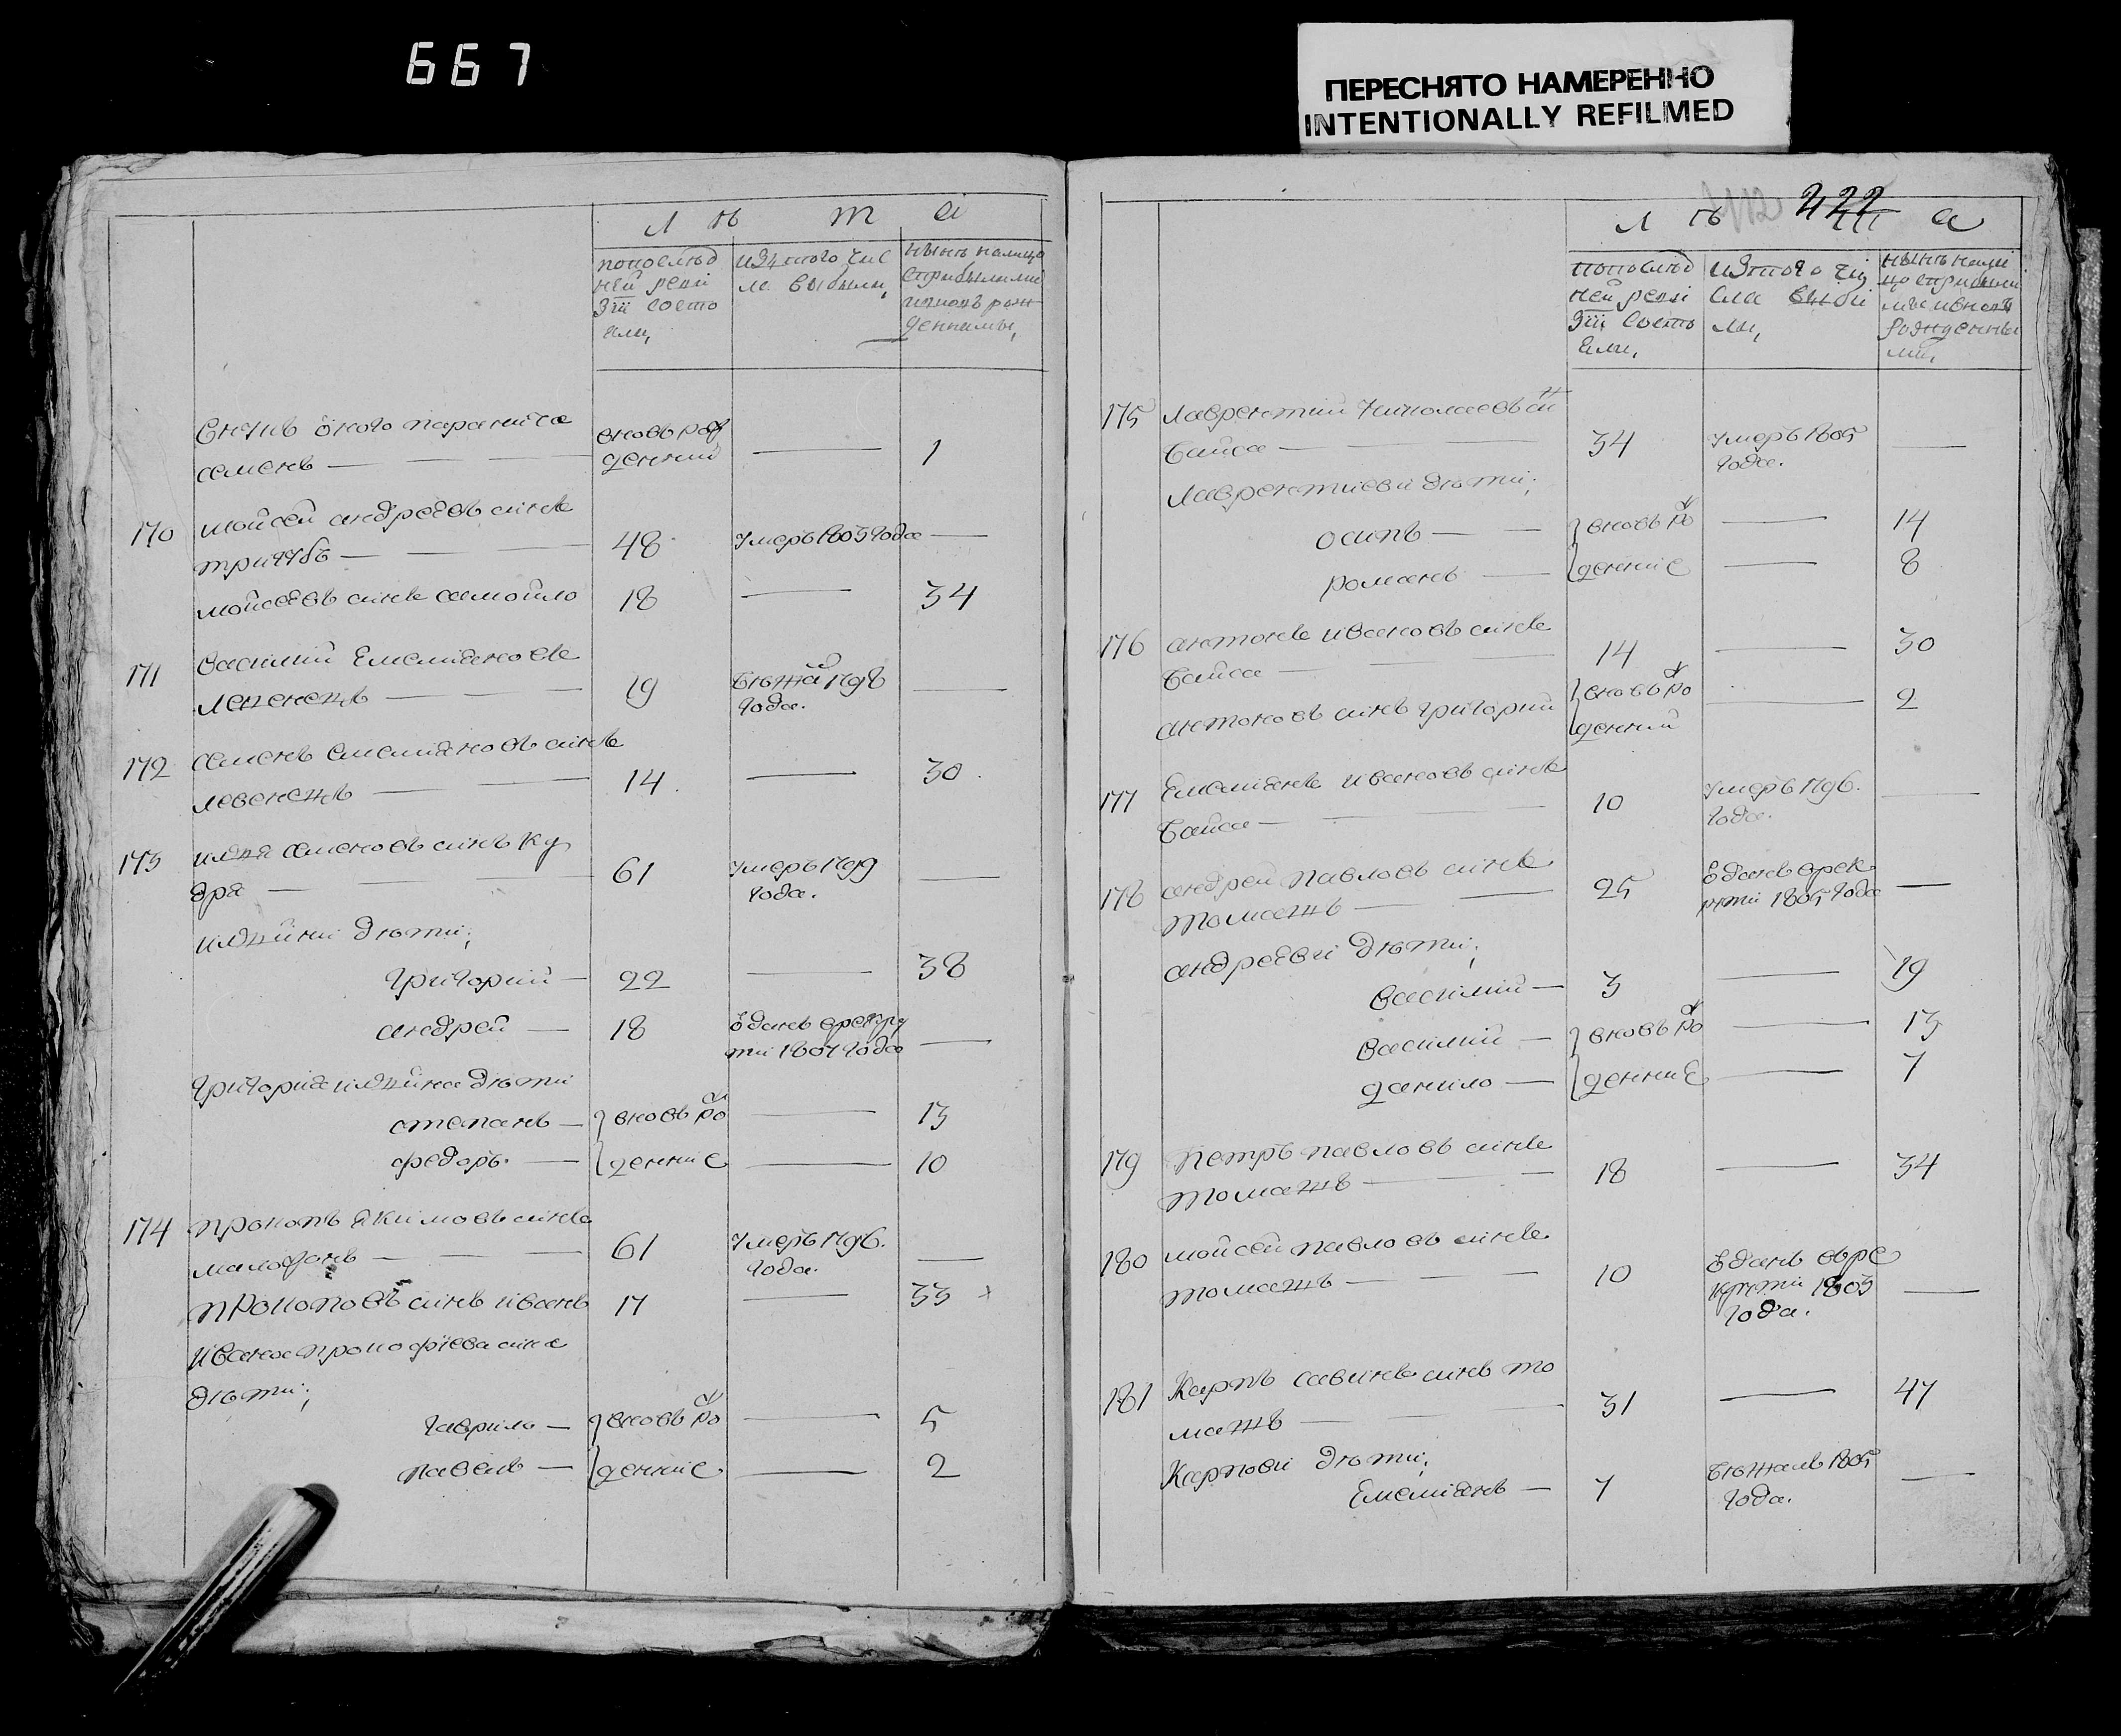 667
ПЕРЕСНЯТО НАМЕРЕННО
INTENTIONALLY REFILMED
Л ѣ т а
попослѣд
ней реви
зіи состо
яли,
изтого чис
ла выбыли,
нынѣ налицо
денными,
семенъ — вновь рож
денний — 1
170 мойсей андреевъ синъ
48 умеръ 1803 года —
мойсеевъ синъ самойло 18 — 34
171 василий Емелияновъ
19 бежа 1798
года. —
172 семенъ емелияновъ синъ
левенецъ — 14. — 30.
173 илья семеновъ синъ Ку
дря — 61 умеръ 1799
года. —
ильини дѣти;
григорий — 22 — 38
андрей — 18 Ѿданъ врекру
ти 1807 года —
григория ильина дѣти
степанъ — вновь ро — 13
федоръ. — денние — 10
174 прокопъ якимовъ синъ
61 умеръ 1796.
года. —
прокоповъ синъ иванъ 17 — 33
ивана прокофиева сина
дѣти;
гаврило — вновь ро — 5
павелъ — денние — 2
422
Л ѣ а
попослѣд
ней реви
зіи состо
яли,
изтого чи
сла выби
ли,
рожденны
ми,
175 лаврентий николаевъ
байса — 34 умеръ 1805
года. —
лаврентиеви дѣти;
осипъ — вновь ро — 14
романъ — денние — 8
176 антонъ ивановъ синъ
байса — 14 — 30
антоновъ синъ григорий вновь ро
денний — 2
177 Емелиянъ ивановъ синъ
байса — 10 умеръ 1796.
года. —
178 андрей павловъ синъ
томашъ — 25 Ѿданъ врек
рути 1805 года —
андрееви дѣти;
василий — 3 — 19
василий — вновь ро — 13
данило — денние — 7
179 Петръ павловъ синъ
томашъ — 18 — 34
180 мойсей павловъ синъ
томашъ — 10 Ѿданъ вре
крути 1803
года. —
181 Карпъ савинъ синъ то
машъ — 31 — 47
Карпови дѣти;
Емелиянъ — 7 бежалъ 1805
года. —